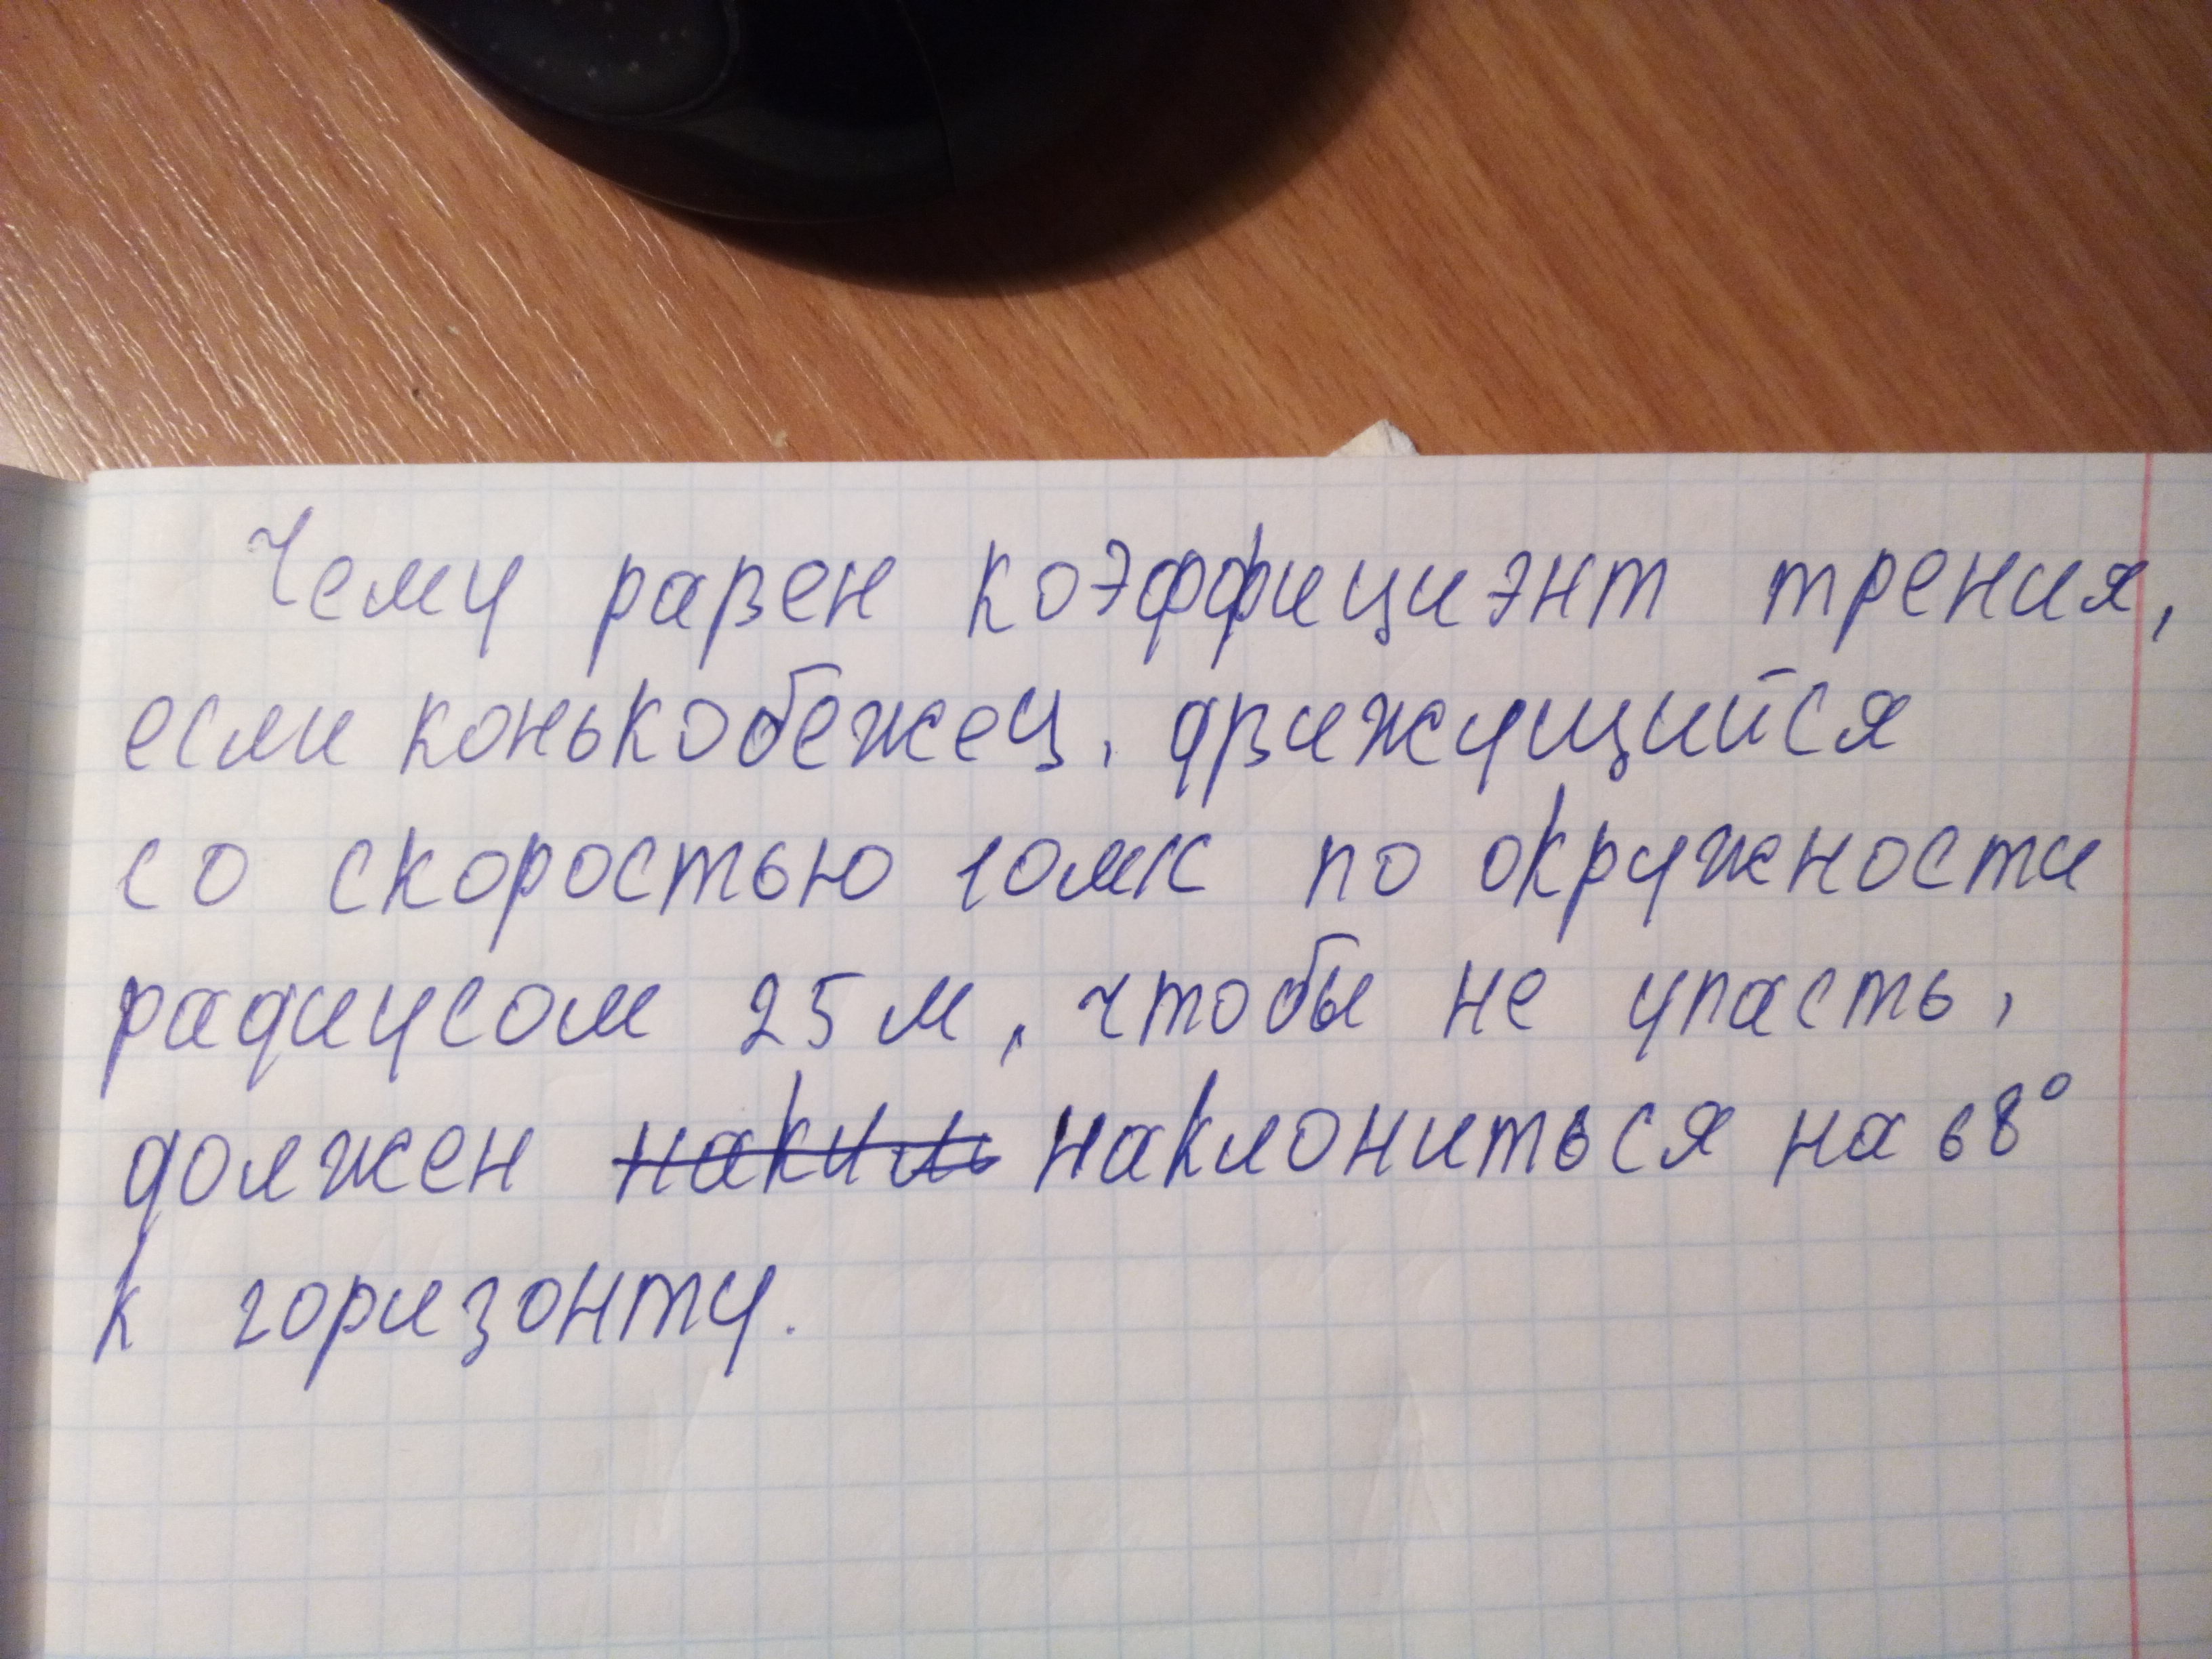 Чему равен коэффициэнт трения,
если конькобежец, движущийся
со скоростью 10мк по окружности
радиусом 25 м, чтобы не упасть,
должен наклониться на 68°
к горизонту.